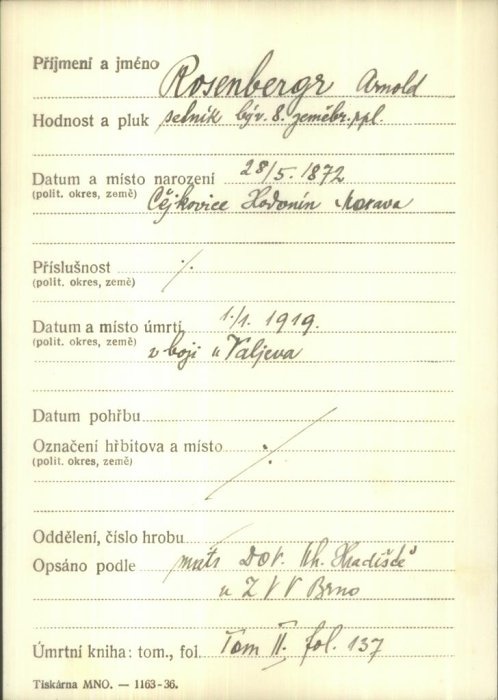 Příjmení a jméno Rosenbergr Arnold
Hodnost a pluk setník býv. 8. zeměbr. ppl.
Datum a místo narození 28/5. 1872
(polit. okres, země) Čejkovice Hodonín Morava
Příslušnost ·/.
(polit. okres, země)
Datum a místo úmrtí 1./1. 1919.
(polit. okres, země) v boji u Valjeva
Datum pohřbu
Označení hřbitova a místo ·/.
(polit. okres, země)
Oddělení, číslo hrobu
Opsáno podle matr. DOV. Uh. Hradiště
u ZVV Brno
Úmrtní kniha: tom., fol. Tom II. fol. 137
Tiskárna MNO. — 1163-36.